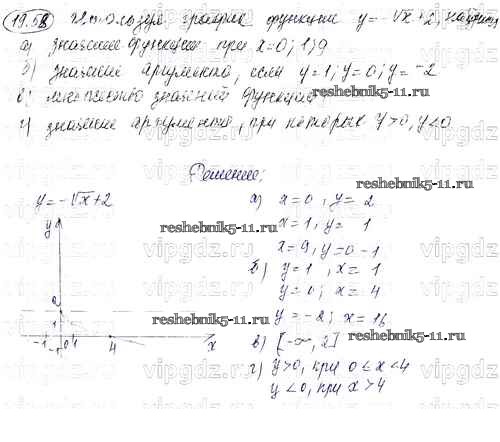 19.58 Используя график функции y=-√x+2, найдите
а) значение функции при x=0; 1; 9
б) значение аргумента, если y=1; y=0; y=-2
в) множество значений функции
г) значение аргумента, при которых y>0, y<0
reshebnik5-11.ru
Решение:
y=-√x+2
y
2
1
-1 0 1 4 x
-1
а) x=0, y=2
x=1, y=1
x=9, y=0-1
б) y=1, x=1
y=0; x=4
y=-2; x=16
в) [-∞, 2]
г) y>0, при 0≤x<4
y<0, при x>4
reshebnik5-11.ru
reshebnik5-11.ru
reshebnik5-11.ru
reshebnik5-11.ru
vipgdz.ru
vipgdz.ru
vipgdz.ru